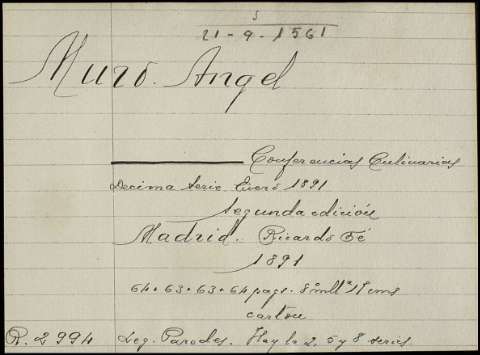 s
21-9-1561
Muro. Angel
Conferencias Culinarias
Decima Serie. Enero 1891
Segunda edición
Madrid. Ricardo Fé
1891
64 + 63 + 63 + 64 pags. 8º mllª 17 cms
carton
R. 2994 Leg. Parodes. Hay la 2, 5 y 8 series.